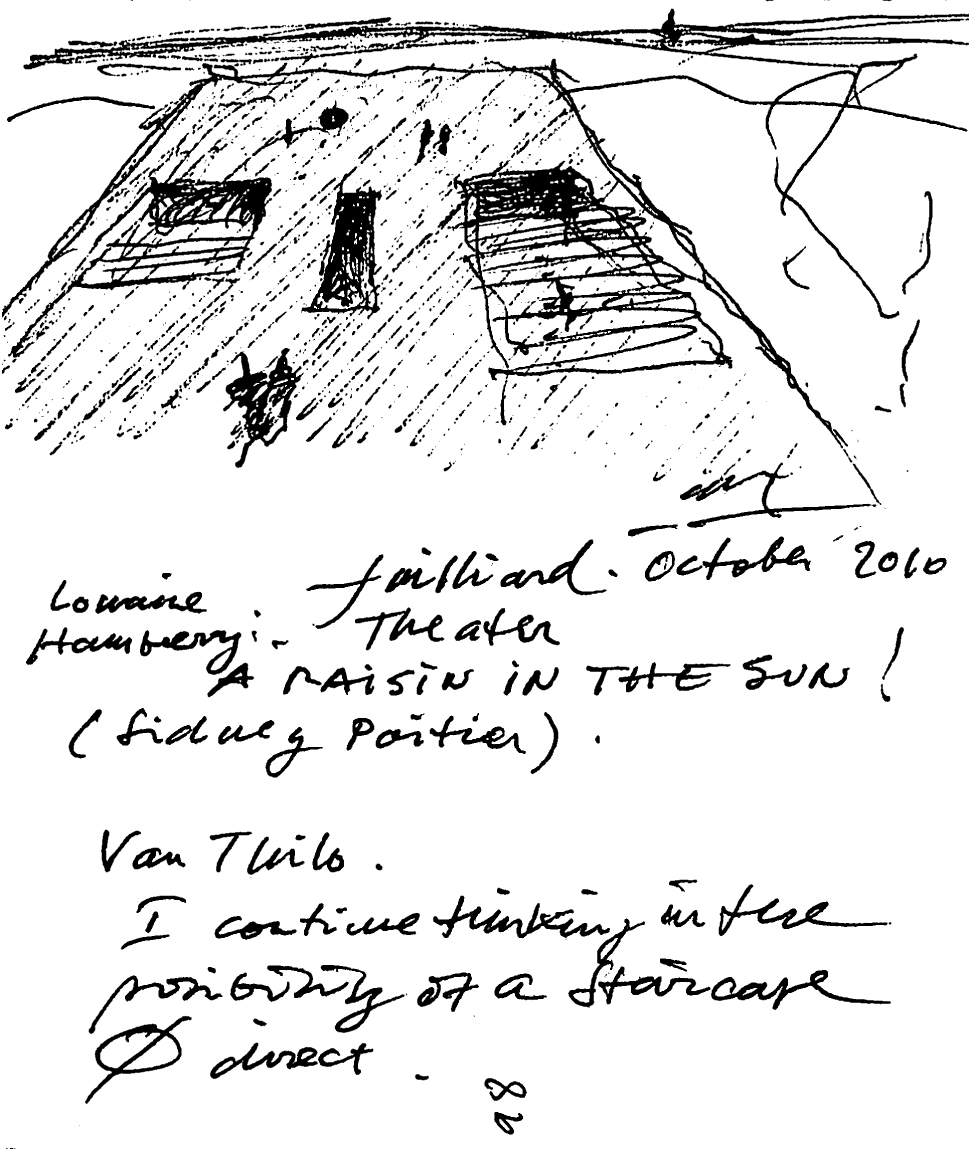 Juilliard. October 2010
Lorraine
Hansberry:. Theater
A RAISIN IN THE SUN!
(Sidney Poitier).
Van Thilo.
I continue thinking in the
posibility of a staircase
Ø direct.
28